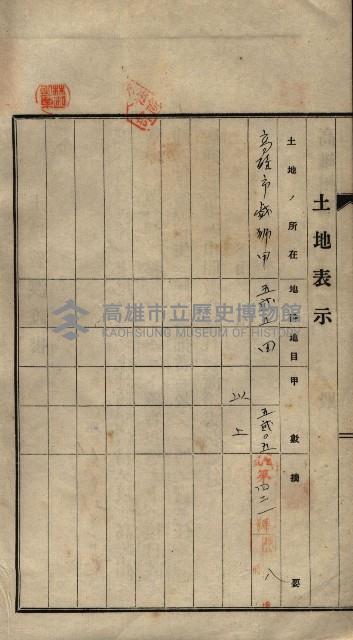 土地表示
土地ノ所在
地番
地目
甲數
摘要
高雄市戯獅甲
五弐五
田
五弐〇五
第四二一號
八
以上
高雄市立歷史博物館
KAOHSIUNG MUSEUM OF HISTORY